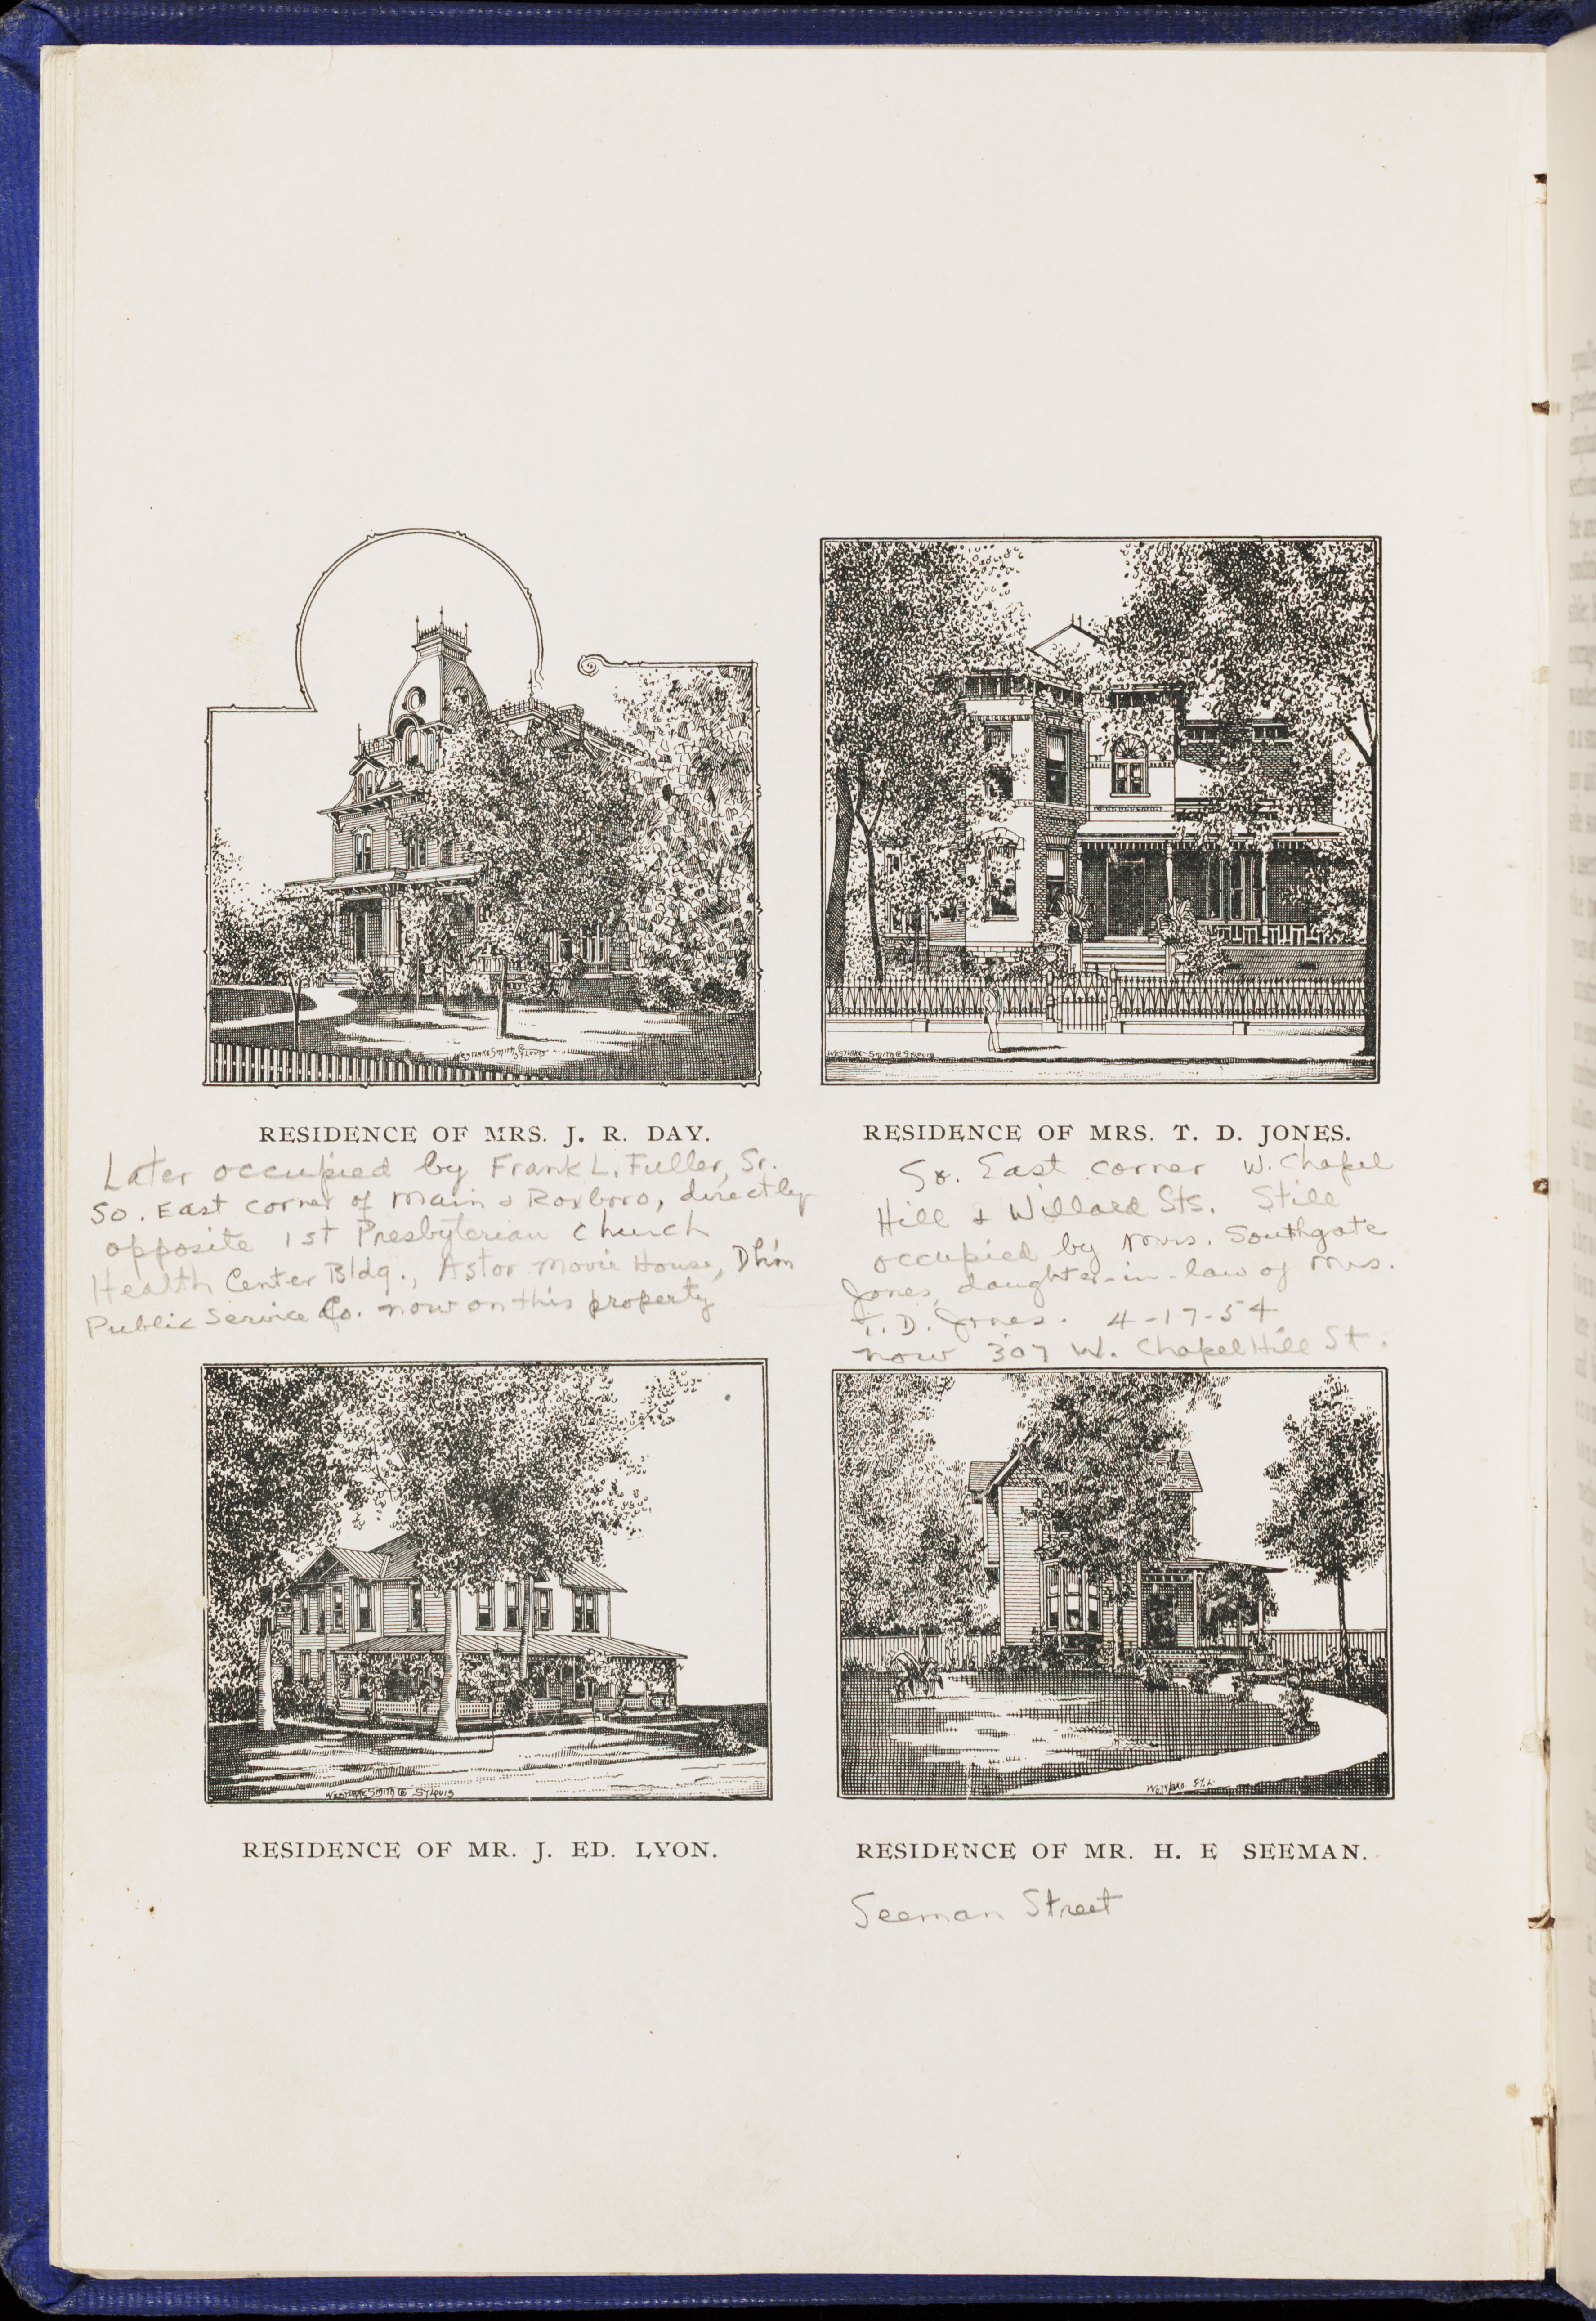 WESTLAKE SMITH @ ST LOUIS
WESTLAKE-SMITH @ ST LOUIS
RESIDENCE OF MRS. J. R. DAY.
Later occupied by Frank L. Fuller, Sr.
So. East corner of Main & Roxboro, directly
opposite 1st Presbyterian Church
Health Center Bldg., Astor Movie House, Dh'm
Public Service Co. now on this property
RESIDENCE OF MRS. T. D. JONES.
So. East corner W. Chapel
Hill & Willard Sts. Still
occupied by Mrs. Southgate
Jones, daughter-in-law of Mrs.
T. D. Jones. 4-17-54
now 307 W. Chapel Hill St.
WESTLAKE SMITH @ ST LOUIS
Westlake St. L.
RESIDENCE OF MR. J. ED. LYON.
RESIDENCE OF MR. H. E SEEMAN.
Seeman Street